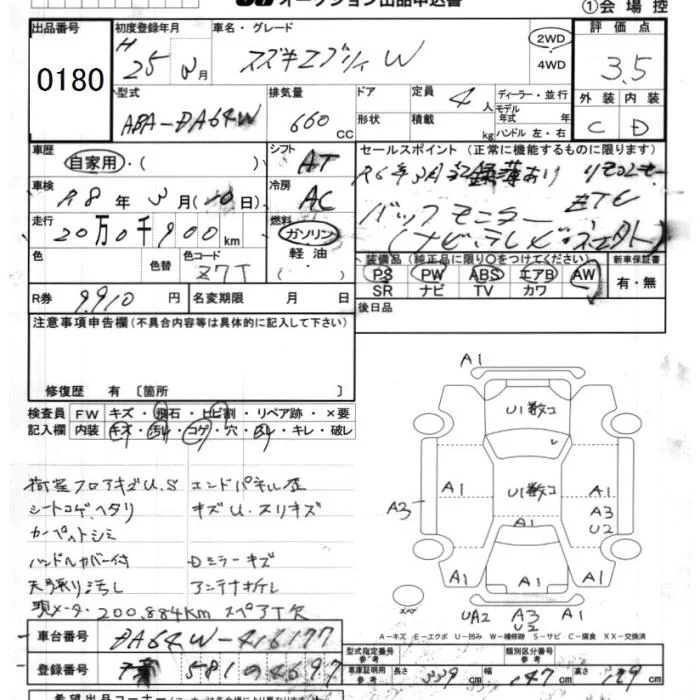 オークション出品申込書
①会場控
出品番号 初度登録年月 車名・グレード 評価点
0180
H 25 年 月 スズキエブリィ W 2WD ・ 4WD 3.5
型式 排気量 ドア 定員 ディーラー・並行 外装 内装
ABA-DA64W 660 CC 4人 モデル年式 年 C D
形状 積載 kg ハンドル 左・右
車歴 シフト セールスポイント(正常に機能するものに限ります)
自家用・( ) AT R6年3月記録簿あり リモコンキー
車検 冷房
R8年3月(10日) AC バックモニター ETC
走行 燃料
20万0千900km ガソリン (ナビ、テレビ
色 色替 色コード 軽油 装備品(純正品に限り○をつけてください) 新車保証書
Z7T ・( ) PS PW ABS エアB AW 有・無
SR ナビ TV カワ
R券 9910円 名変期限 月 日 後日品
注意事項申告欄(不具合内容等は具体的に記入して下さい)
修復歴 有 〔箇所 〕
検査員 FW キズ・飛石・ヒビ割・リペア跡・×要
記入欄 内装 キズ・汚れ・コゲ・穴・ ・キレ・破レ
荷室フロアキズU.S エンドパネル歪
シートコゲ、ヘタリ キズU・スリキズ
カーペットシミ
ハンドルカバー付 Dミラーキズ
天張り汚し アンテナオレ
現メーター200,884KM スペアT欠
A1
U1数コ
A1 U1数コ A1
A3 A3
A1 U2
A1 A1 A1
スペア UA2 A3
U2
A-キズ E-エクボ U-凹み W-補修跡 S-サビ C-腐食 XX-交換済
車台番号 DA64W-416177
登録番号 581 の 4697
型式指定番号 参考 類別区分番号 参考
車庫証明用 参考 長さ 339 幅 147 高さ 189